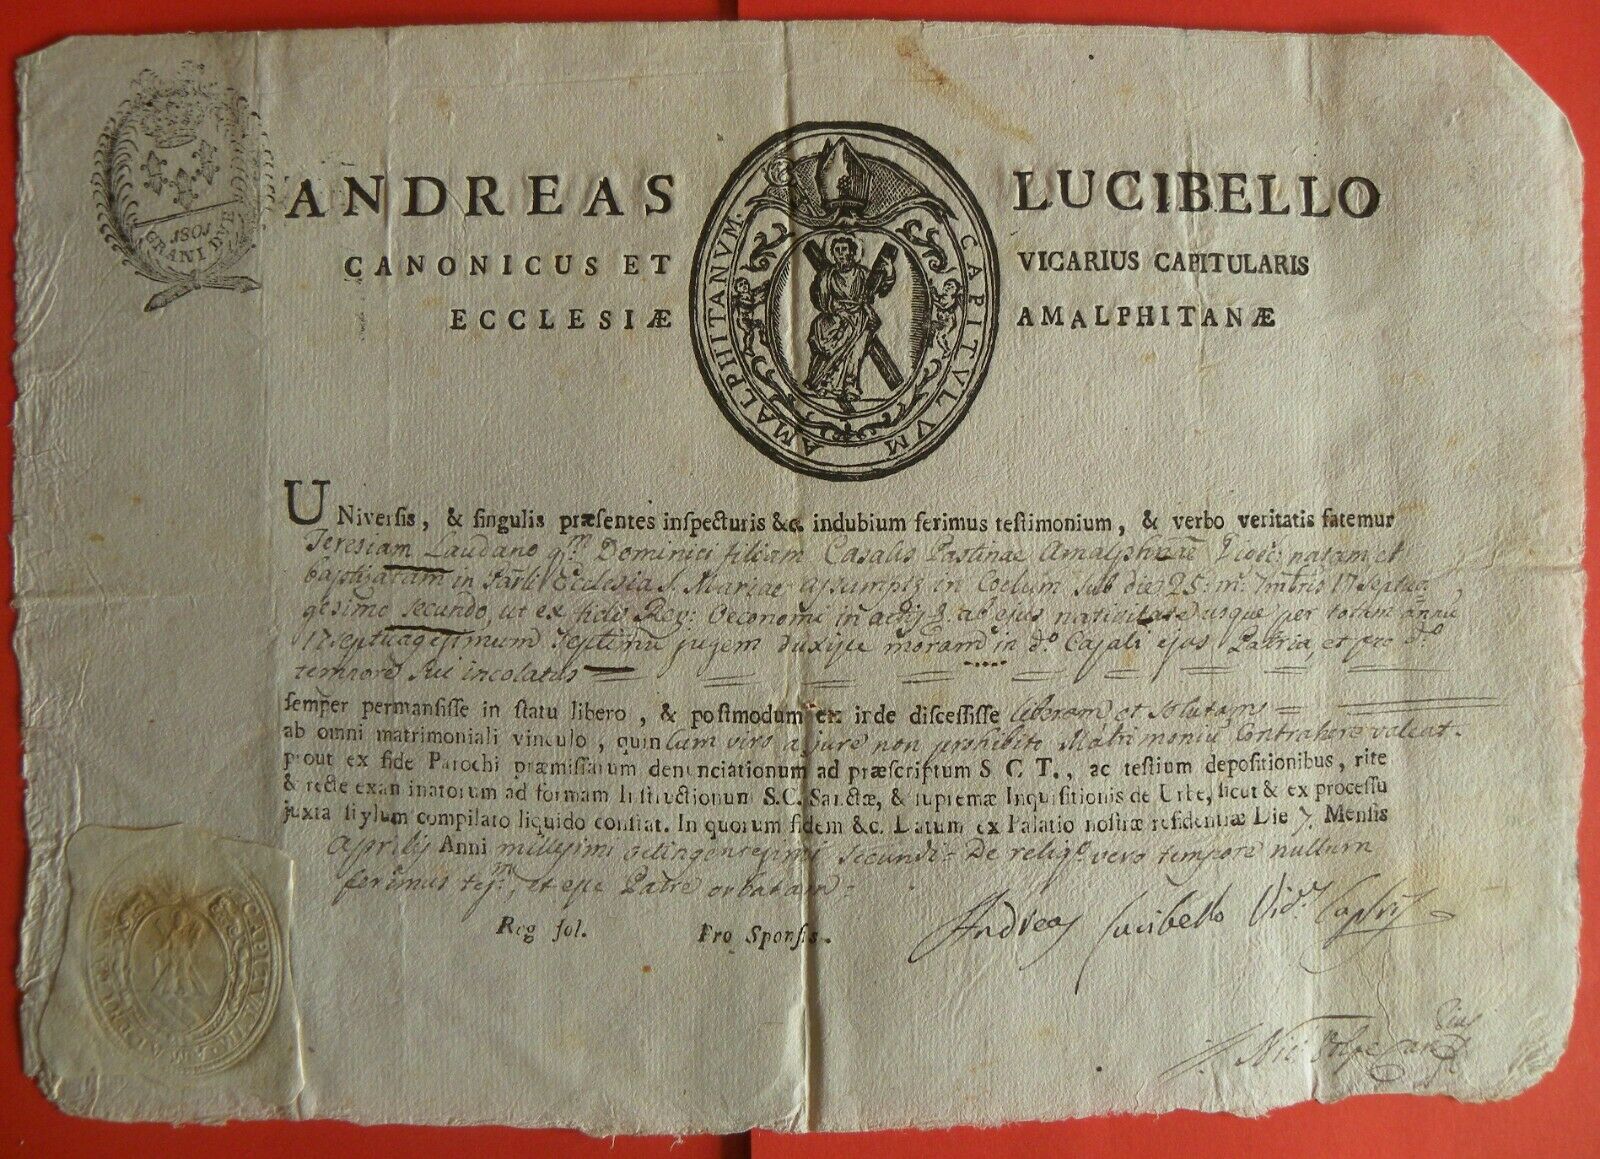 1801
GRANI DUE
ANDREAS LUCIBELLO
CANONICUS ET VICARIUS CAPITULARIS
ECCLESIÆ AMALPHITANÆ
CAPITVLVM AMALPHITANVM.
UNiversis, & singulis præsentes inspecturis &c. indubium ferimus testimonium, & verbo veritatis fatemur
Teresiam Laudano qm Dominici filiam Casalis Pastinae Amalphnae Dioec: natam et
baptizatam in Parli Ecclesia S. Mariae assumptae in Coelum sub die 25: mis 7mbris 17 septua
gesimo secundo, ut ex fide Rev: Oeconomi in actis ab ejus nativitate usque per totum annu
17 septuagesimum septimu jugem duxisse moram in do Casali ejus Patria, et pro do
tempore sui incolatus
semper permansisse in statu libero, & postmodum ex inde discessisse liberam et solutam
ab omni matrimoniali vinculo, quin cum viro a jure non prohibito Matrimoniu Contrahere valeat.
prout ex fide Parochi præmissarum denunciationum ad præscriptum S. C. T., ac testium depositionibus, rite
& recte examinatorum ad formam Instructionum S.C. Sanctæ, & supremæ Inquisitionis de Urbe, sicut & ex processu
juxta stylum compilato liquido constat. In quorum fidem &c. Datum ex Palatio nostræ residentiæ Die 7. Mensis
Aprilis Anni millesimi octingentesimi secundi = De religo vero tempore nullum
ferimus tesm, et esse Patre orbatam =
Reg fol. Pro Sponsis.
Andreas Lucibello Vics Caplris
CAPITVLVM AMALPHITANVM
Nic.